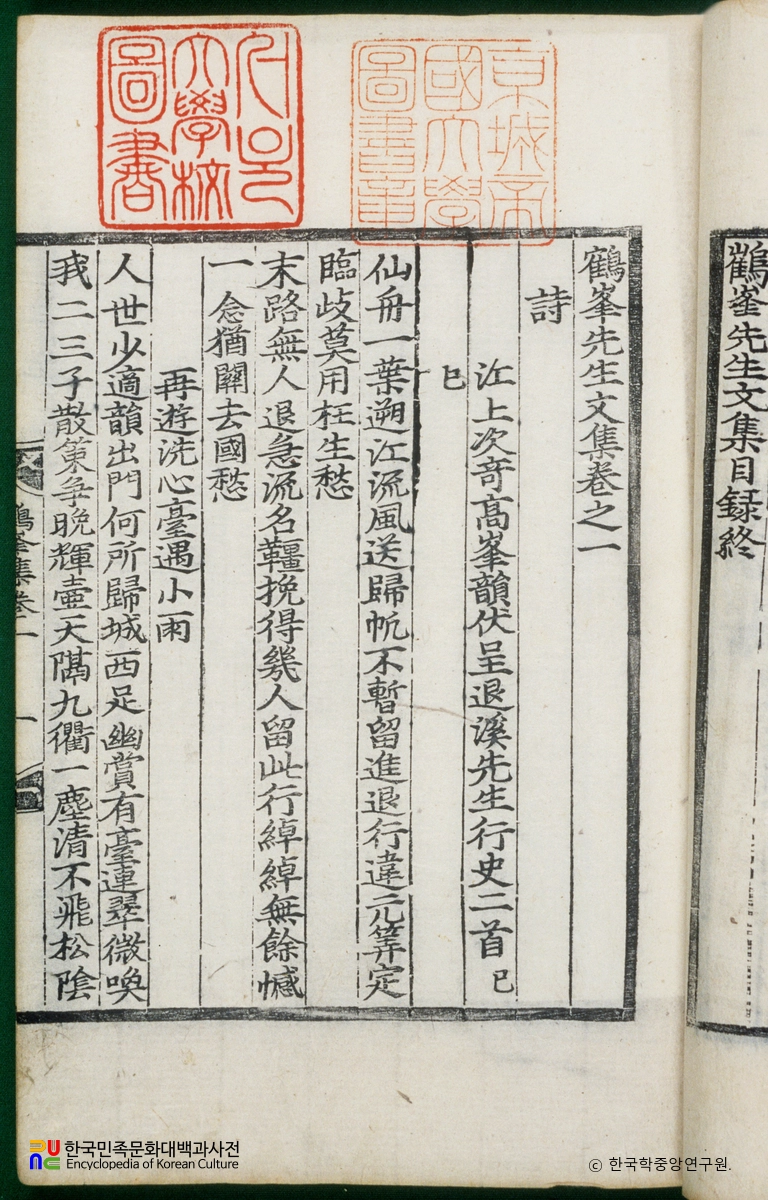 鶴峯先生文集目録終
京城帝
國大學
圖書章
大學校
圖書
鶴峯先生文集卷之一
詩
江上次奇高峯韻伏呈退溪先生行史二首 己
巳
仙舟一葉遡江流風送歸帆不暫留進退行違元筭定
臨歧莫用枉生愁
末路無人退急流名韁挽得幾人留此行綽綽無餘憾
一念猶關去國愁
再遊洗心臺遇小雨
人世少適韻出門何所歸城西足幽賞有臺連翠微喚
我二三子散策爭晩輝壷天隔九衢一塵清不飛松陰
鶴峯集卷一
一
한국민족문화대백과사전
Encyclopedia of Korean Culture
© 한국학중앙연구원.